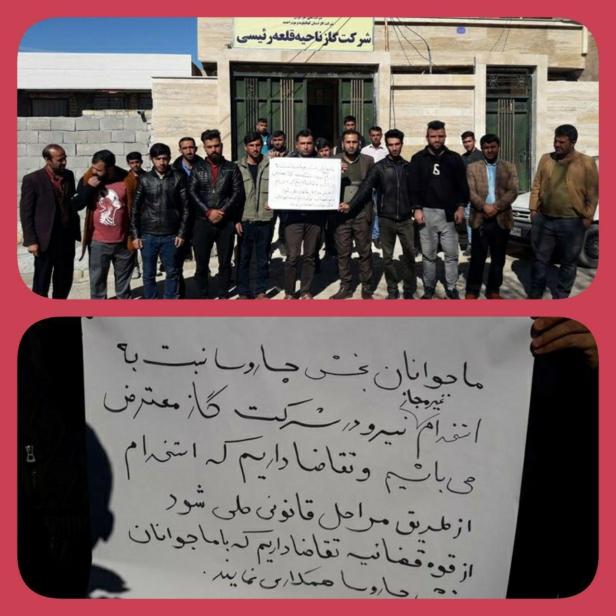 شرکت گاز استان کهگیلویه و بویراحمد
شرکت گاز ناحیه قلعه رئیسی
ما جوانان بخش چاروسا نسبت به
غیرمجاز
استخدام نیرو در شرکت گاز معترض
می باشیم و تقاضا داریم که استخدام
از طریق مراحل قانونی طی شود
از قوه قضائیه تقاضا داریم که با ما جوانان
بخش چاروسا همکاری نمایند.